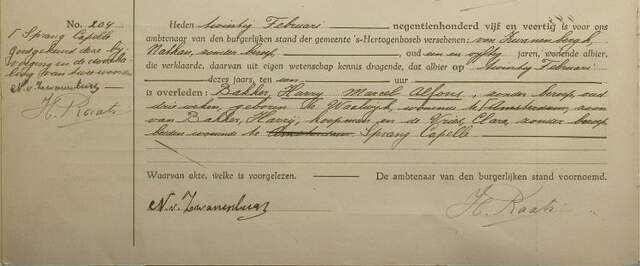 No. 204
1 Sprang Capelle
goedgekeurd deze bij-
voeging en de doorha-
ling van twee woorden
N. v. Zwanenburg
H. Raats
Heden twintig Februari negentienhonderd vijf en veertig is voor ons
ambtenaar van den burgerlijken stand der gemeente 's-Hertogenbosch verschenen: van Zwanenburgh,
Nathan, zonder beroep, oud een en vijftig jaren, wonende alhier,
die verklaarde, daarvan uit eigen wetenschap kennis dragende, dat alhier op twintig Februari
dezes jaars, ten een uur
is overleden: Bakker, Harry Marcel Alfons, zonder beroep, oud
drie weken, geboren te Waalwijk, wonende te Amsterdam, zoon
van Bakker, Harrij, koopman en de Vries, Clara, zonder beroep,
beiden wonende te Amsterdam, Sprang Capelle
Waarvan akte, welke is voorgelezen. De ambtenaar van den burgerlijken stand voornoemd.
N. v. Zwanenburg H. Raats